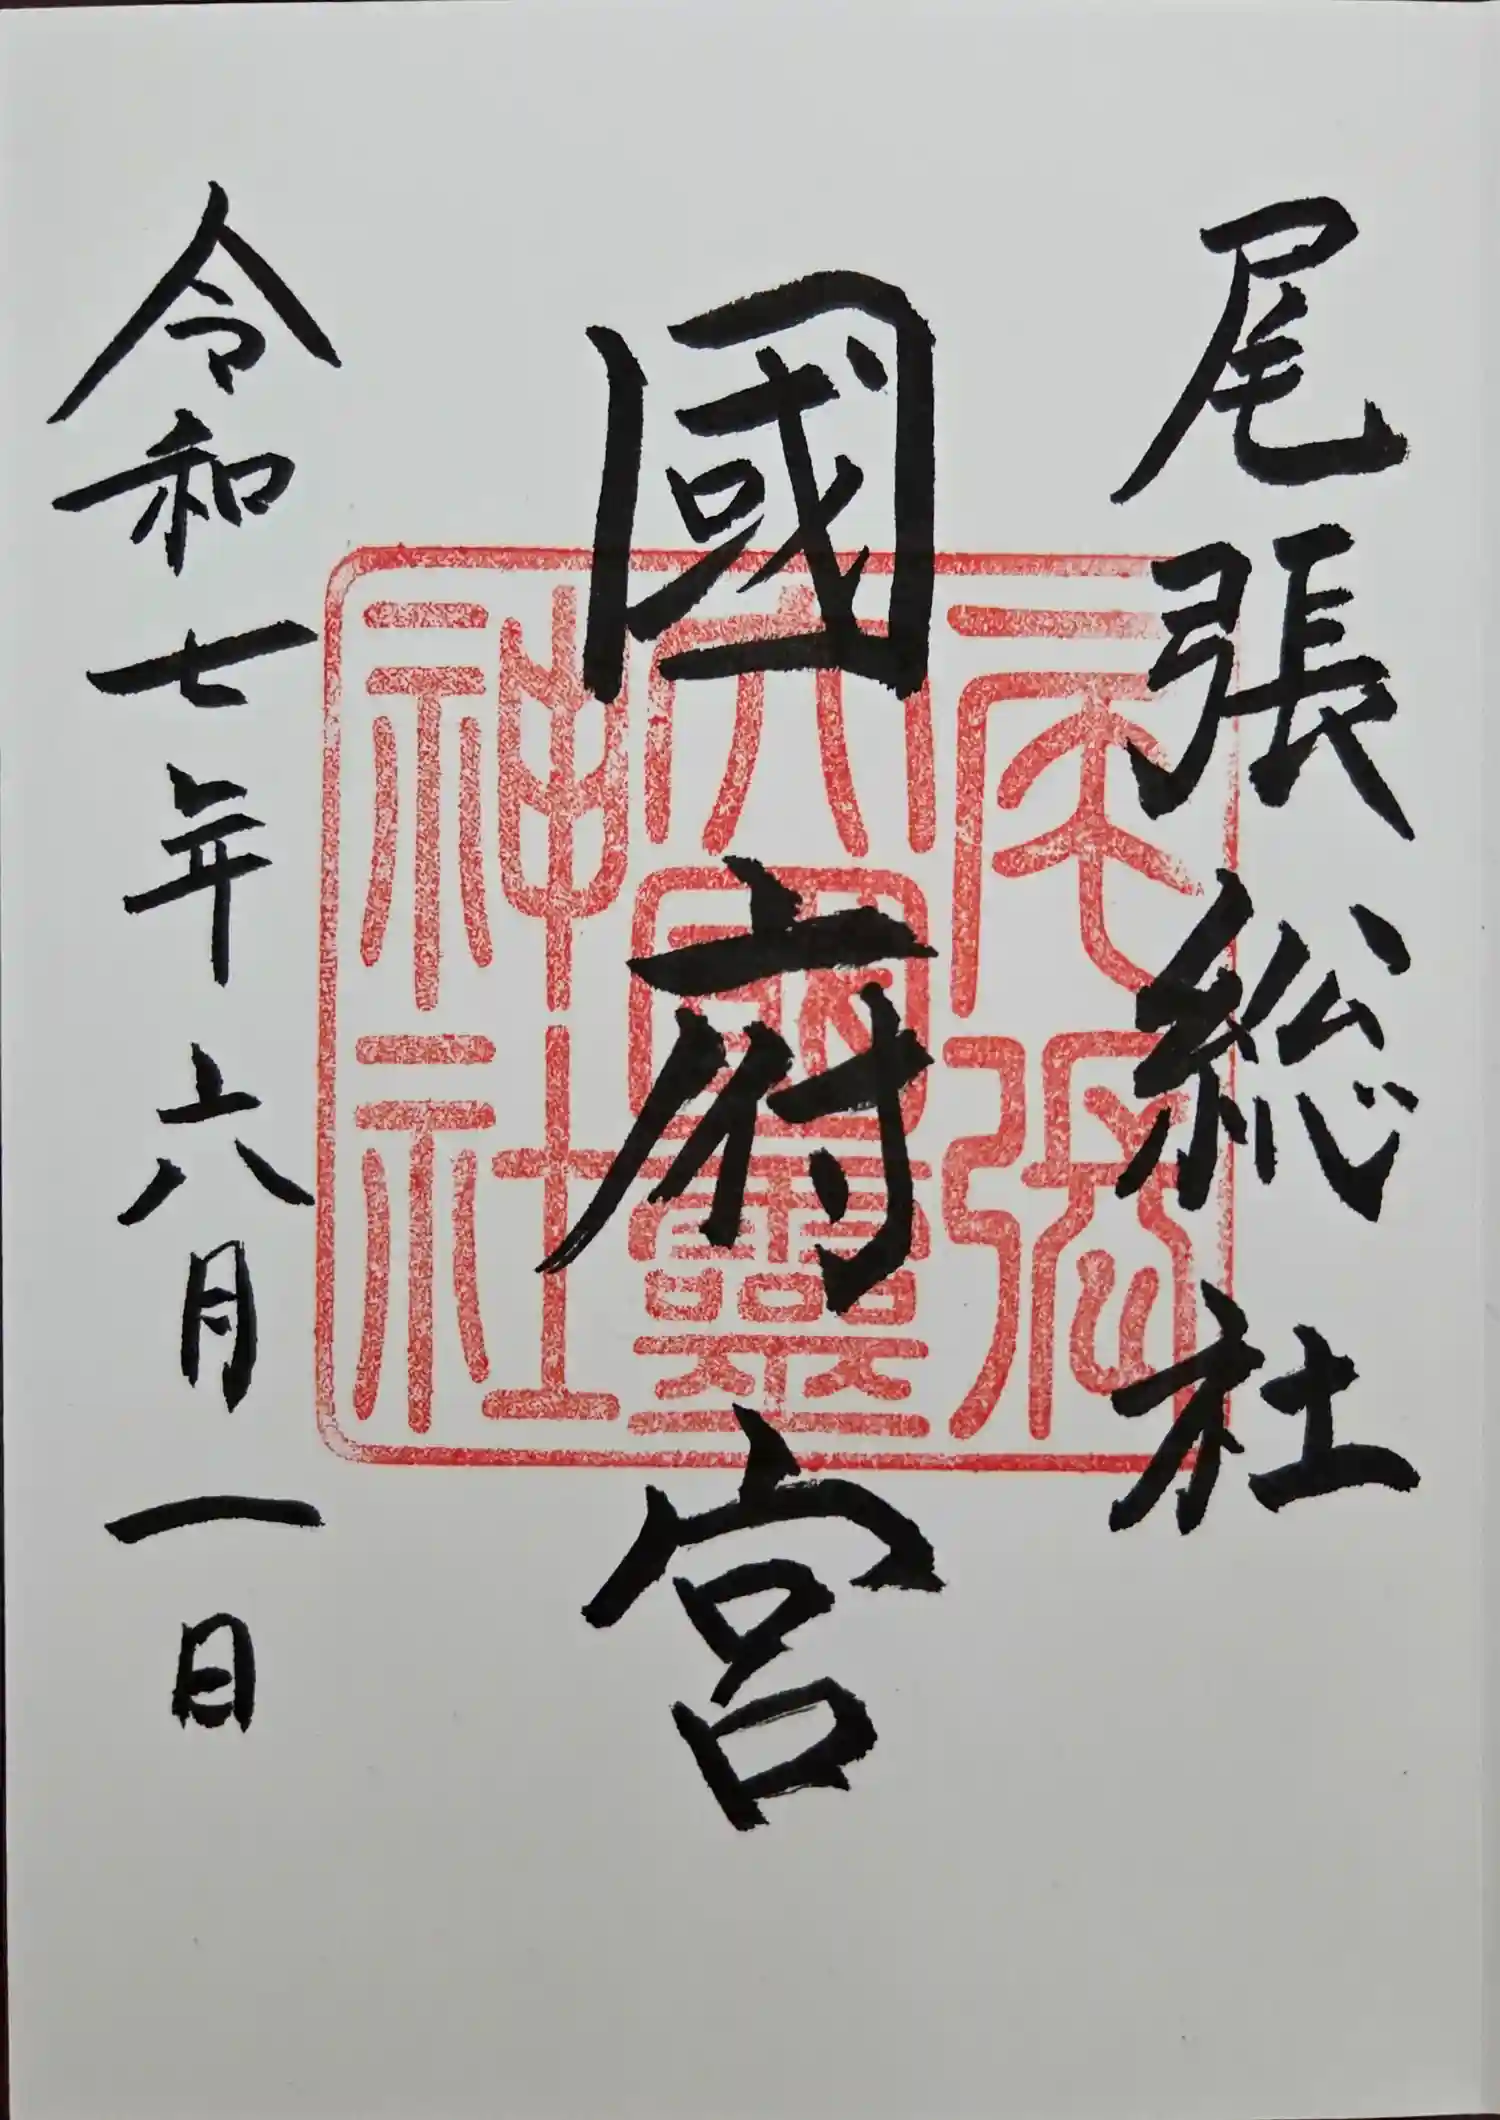 尾張総社
國府宮
令和七年六月一日
尾張
大國霊
神社